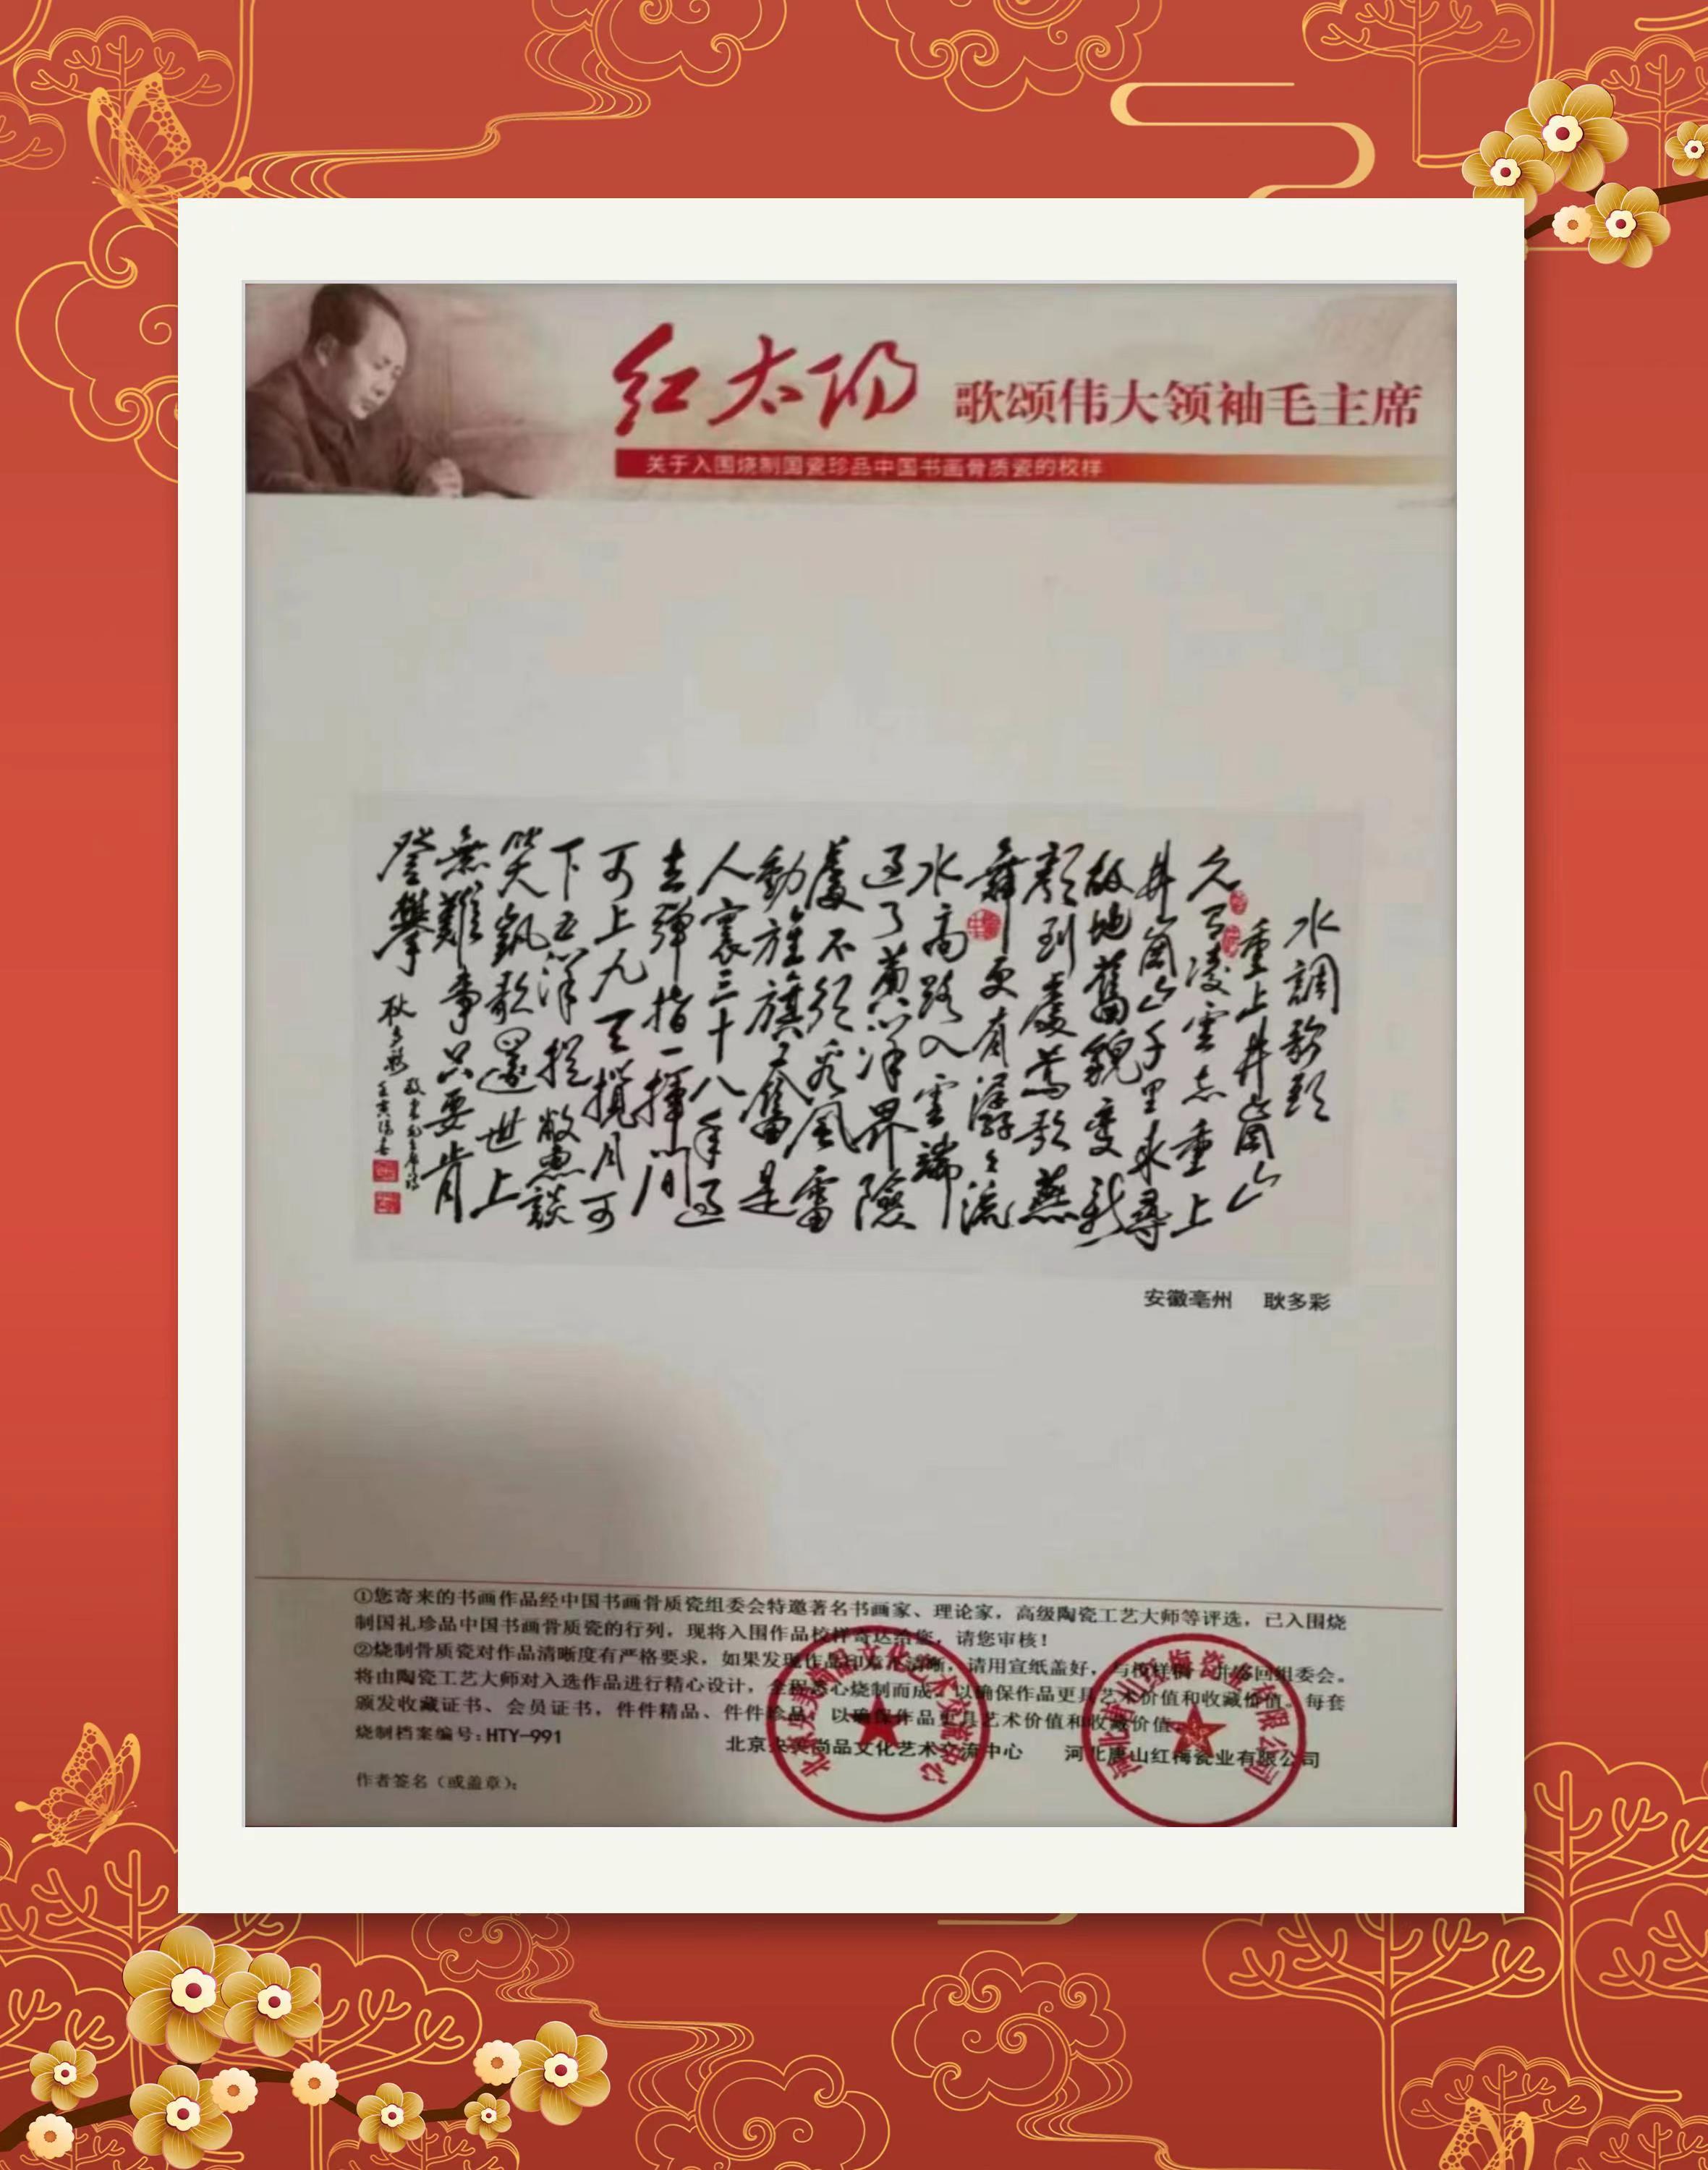 红太阳
歌颂伟大领袖毛主席
关于入围烧制国瓷珍品中国书画骨质瓷的校样
水調歌頭
重上井岡山
久有凌雲志重上
井岡山千里来尋
故地舊貌變新
顏到處鶯歌燕
舞更有潺潺流
水高路入雲端
過了黄洋界險
處不須看風雷
動旌旗奮是
人寰三十八年過
去彈指一揮間
可上九天攬月可
下五洋捉鱉談
笑凱歌還世上
無難事只要肯
登攀
耿多彩
安徽亳州 耿多彩
①您寄来的书画作品经中国书画骨质瓷组委会特邀著名书画家、理论家，高级陶瓷工艺大师等评选，已入围烧
制国礼珍品中国书画骨质瓷的行列，现将入围作品校样寄达给您，请您审核！
②烧制骨质瓷对作品清晰度有严格要求，如果发现作品印章不清晰，请用宣纸盖好，与校样一并寄回组委会。
将由陶瓷工艺大师对入选作品进行精心设计，全程心烧制而成，以确保作品更具艺术价值和收藏价值。每套
颁发收藏证书、会员证书，件件精品、件件珍品，以确保作品更具艺术价值和收藏价值。
烧制档案编号：HTY-991
北京央美尚品文化艺术交流中心 河北唐山红梅瓷业有限公司
作者签名（或盖章）：
北京央美尚品文化艺术交流中心
河北唐山红梅瓷业有限公司